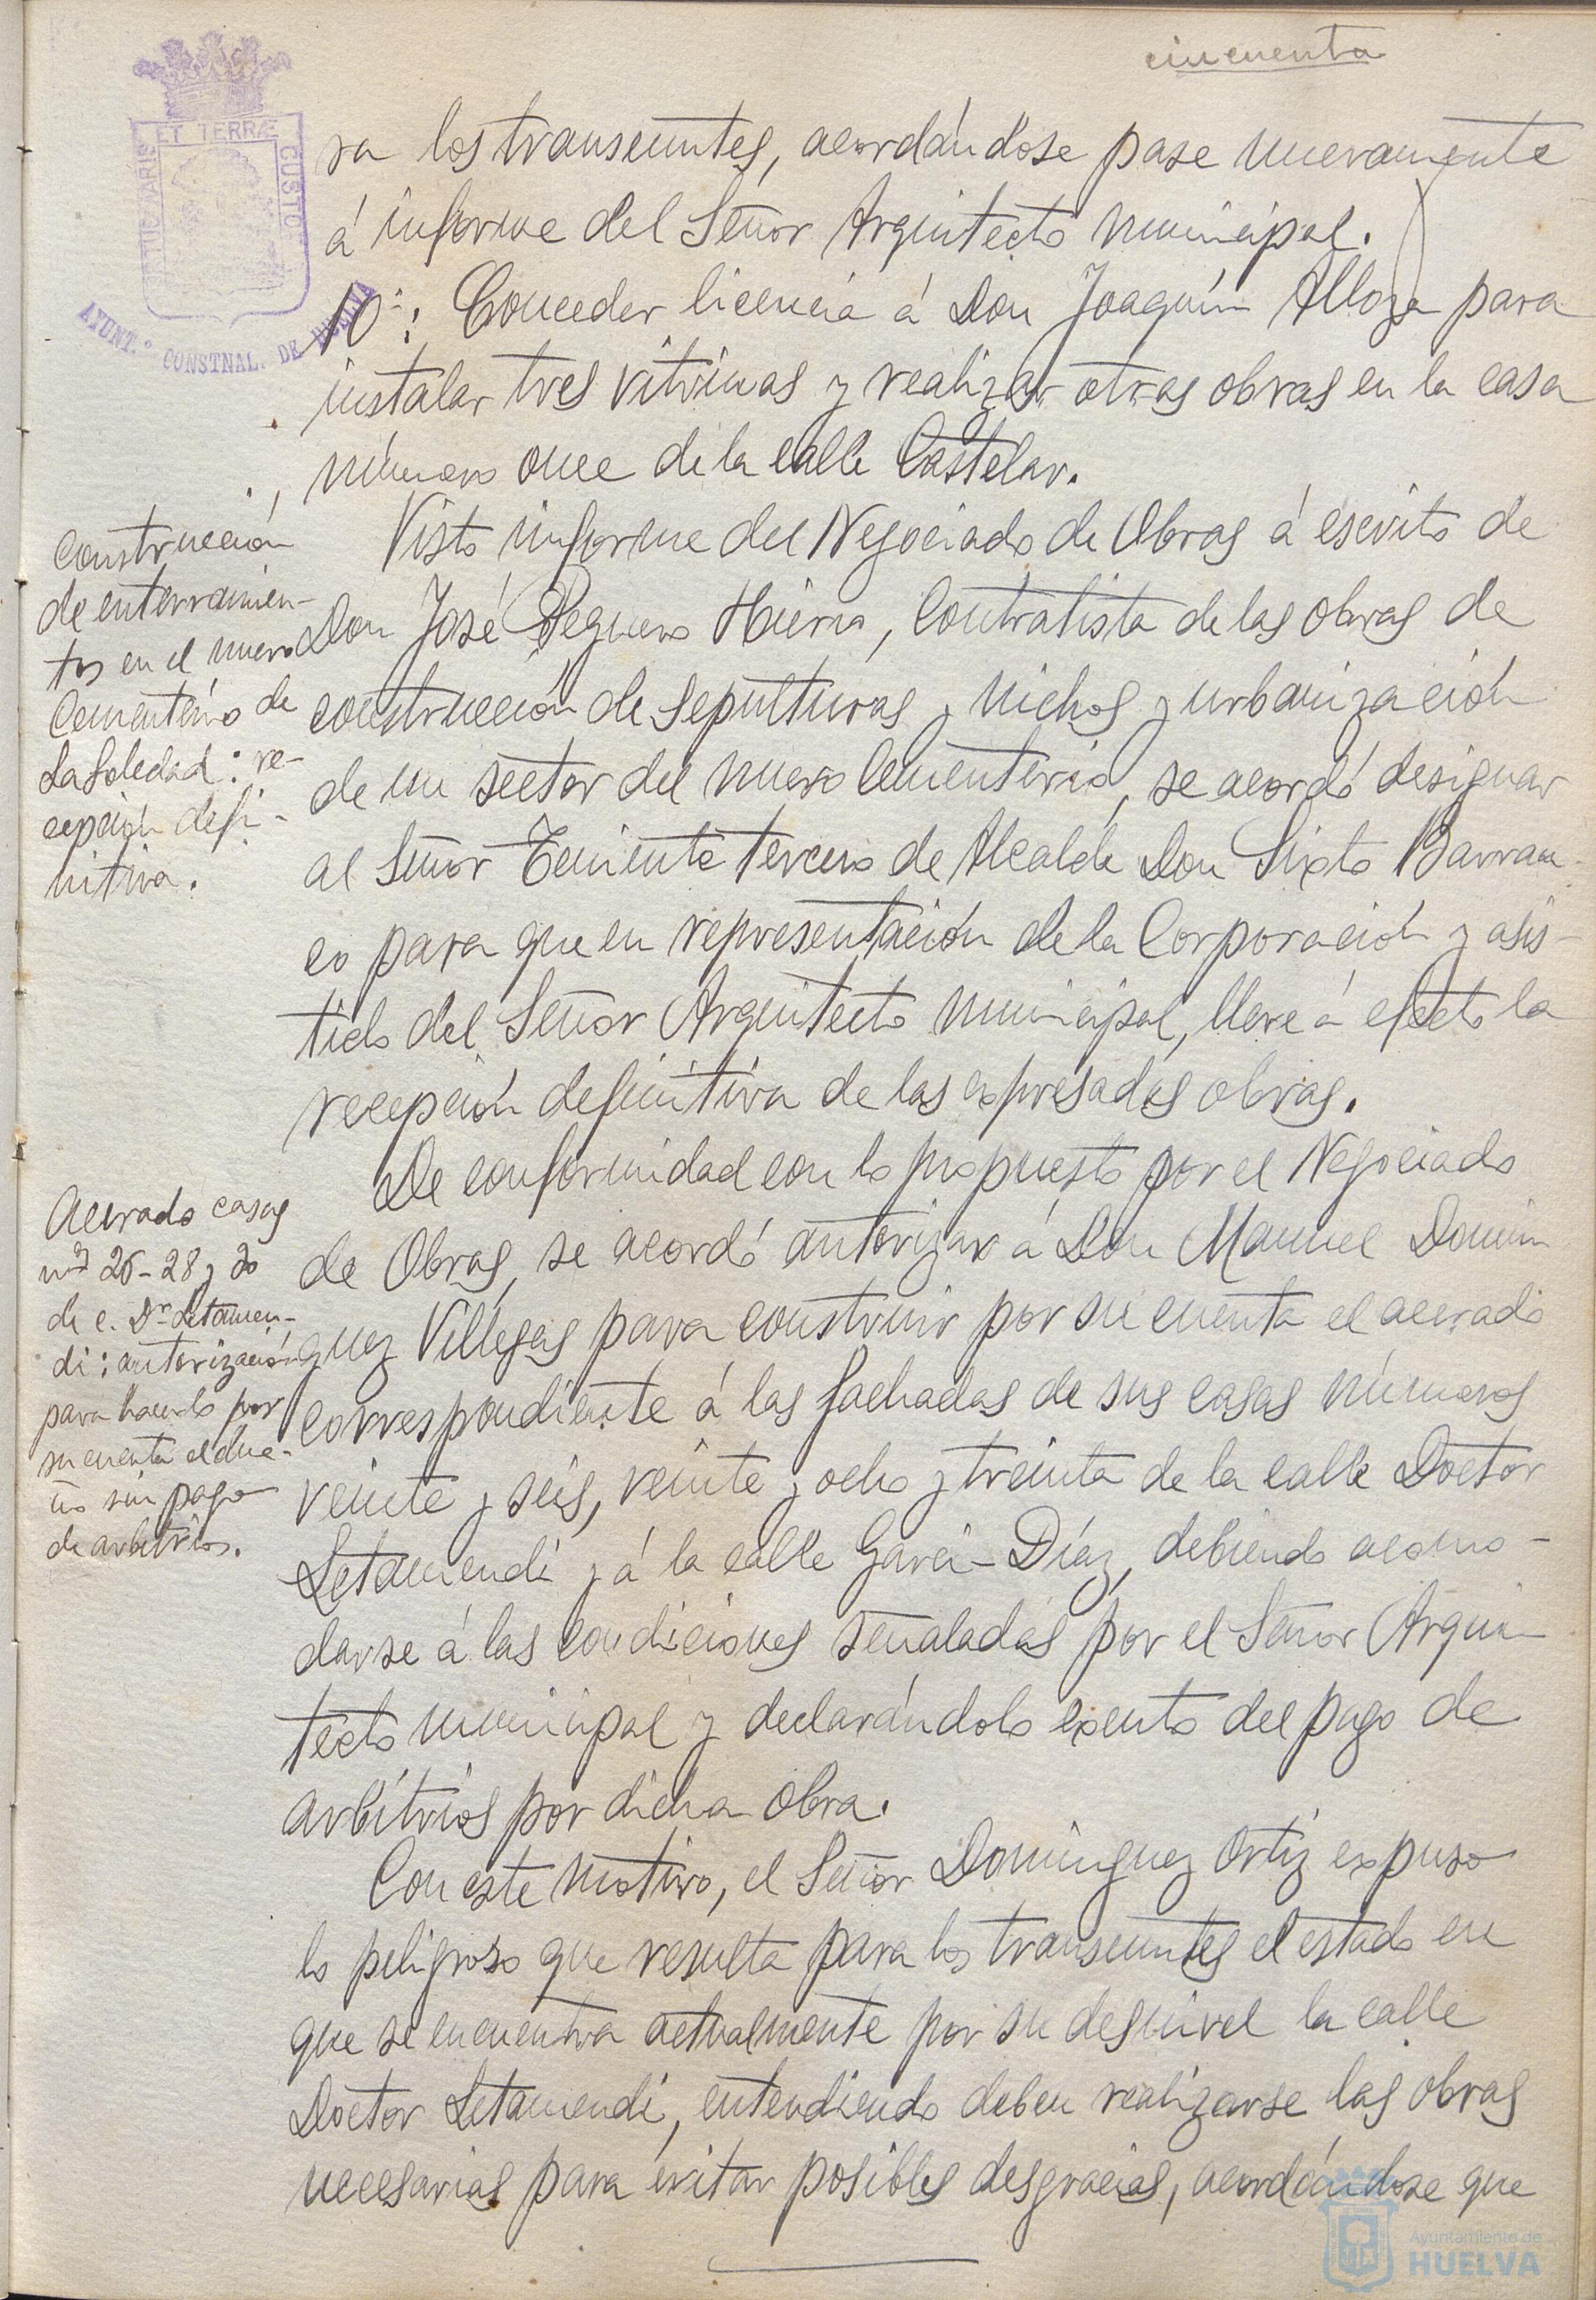 cincuenta
PORTUS MARIS ET TERRÆ CUSTO
AYUNT.º CONSTNAL. DE HUELVA
ra los transeuntes, acordándose pase nuevamente
á informe del Señor Arquitecto municipal.
10º: Conceder licencia á Don Joaquín Alloza para
instalar tres vitrinas y realizar otras obras en la casa
número once de la calle Castelar.
Construcción
de enterramien-
tos en el nuevo
Cementerio de
La Soledad: re-
cepción defi-
nitiva.
Visto informe del Negociado de Obras á escrito de
Don José Peguero Hierro, Contratista de las obras de
construcción de sepulturas y nichos y urbanización
de un sector del nuevo Cementerio, se acordó designar
al Señor Teniente tercero de Alcalde Don Sixto Barran-
co para que en representación de la Corporación y asis-
tido del Señor Arquitecto municipal, lleve á efecto la
recepción definitiva de las expresadas obras.
Acerado casas
nos 26-28 y 30
de c. Dr. Letamen-
di: autorización
para hacerlo por
su cuenta el due-
ño sin pago
de arbitrios.
De conformidad con lo propuesto por el Negociado
de Obras, se acordó autorizar á Don Manuel Domin-
guez Villegas para construir por su cuenta el acerado
correspondiente á las fachadas de sus casas números
veinte y seis, veinte y ocho y treinta de la calle Doctor
Letamendi y á la calle Garci-Díaz, debiendo acomo-
darse á las condiciones señaladas por el Señor Arqui-
tecto municipal y declarándolo exento del pago de
arbitrios por dicha obra.
Con este motivo, el Señor Dominguez Ortiz expuso
lo peligroso que resulta para los transeuntes el estado en
que se encuentra actualmente por su desnivel la calle
Doctor Letamendi, entendiendo deben realizarse las obras
necesarias para evitar posibles desgracias, acordándose que
Ayuntamiento de
HUELVA